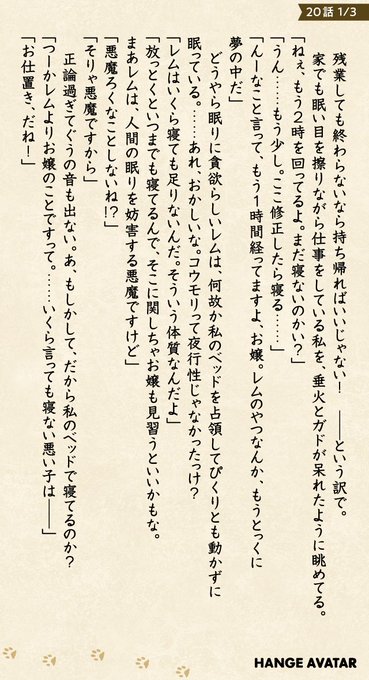 20話 1/3
残業しても終わらないなら持ち帰ればいいじゃない! ――という訳で。
家でも眠い目を擦りながら仕事をしている私を、垂火とガドが呆れたように眺めてる。
「ねぇ、もう2時を回ってるよ。まだ寝ないのかい?」
「うん……もう少し。ここ修正したら寝る……」
「んーなこと言って、もう1時間経ってますよ、お嬢。レムのやつなんか、もうとっくに
夢の中だ」
どうやら眠りに貪欲らしいレムは、何故か私のベッドを占領してぴくりとも動かずに
眠っている。……あれ、おかしいな。コウモリって夜行性じゃなかったっけ?
「レムはいくら寝ても足りないんだ。そういう体質なんだよ」
「放っとくといつまでも寝てるんで、そこに関しちゃお嬢も見習うといいかもな。
まあレムは、人間の眠りを妨害する悪魔ですけど」
「悪魔ろくなことしないね!?」
「そりゃ悪魔ですから」
正論過ぎてぐうの音も出ない。あ、もしかして、だから私のベッドで寝てるのか?
「つーかレムよりお嬢のことですって。……いくら言っても寝ない悪い子は――」
「お仕置き、だね!」
HANGE AVATAR